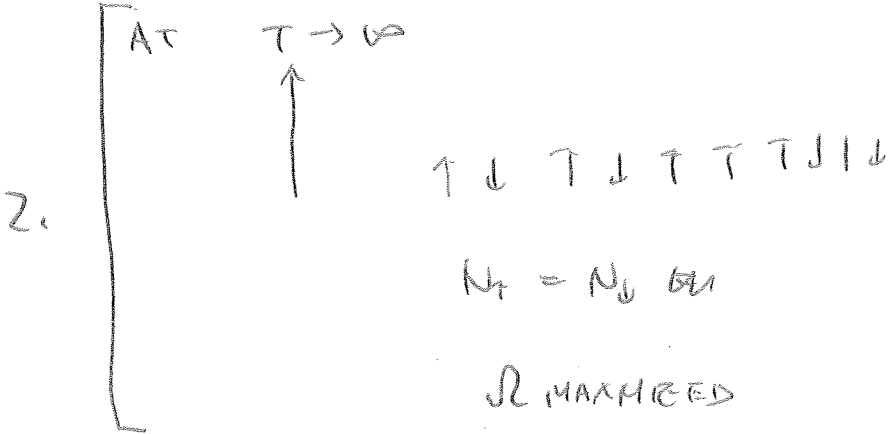 AT T → ∞
↑ ↓ ↑ ↓ ↑ ↑ ↑ ↓ | ↓
2.
N↑ = N↓
Ω MAXMIZED